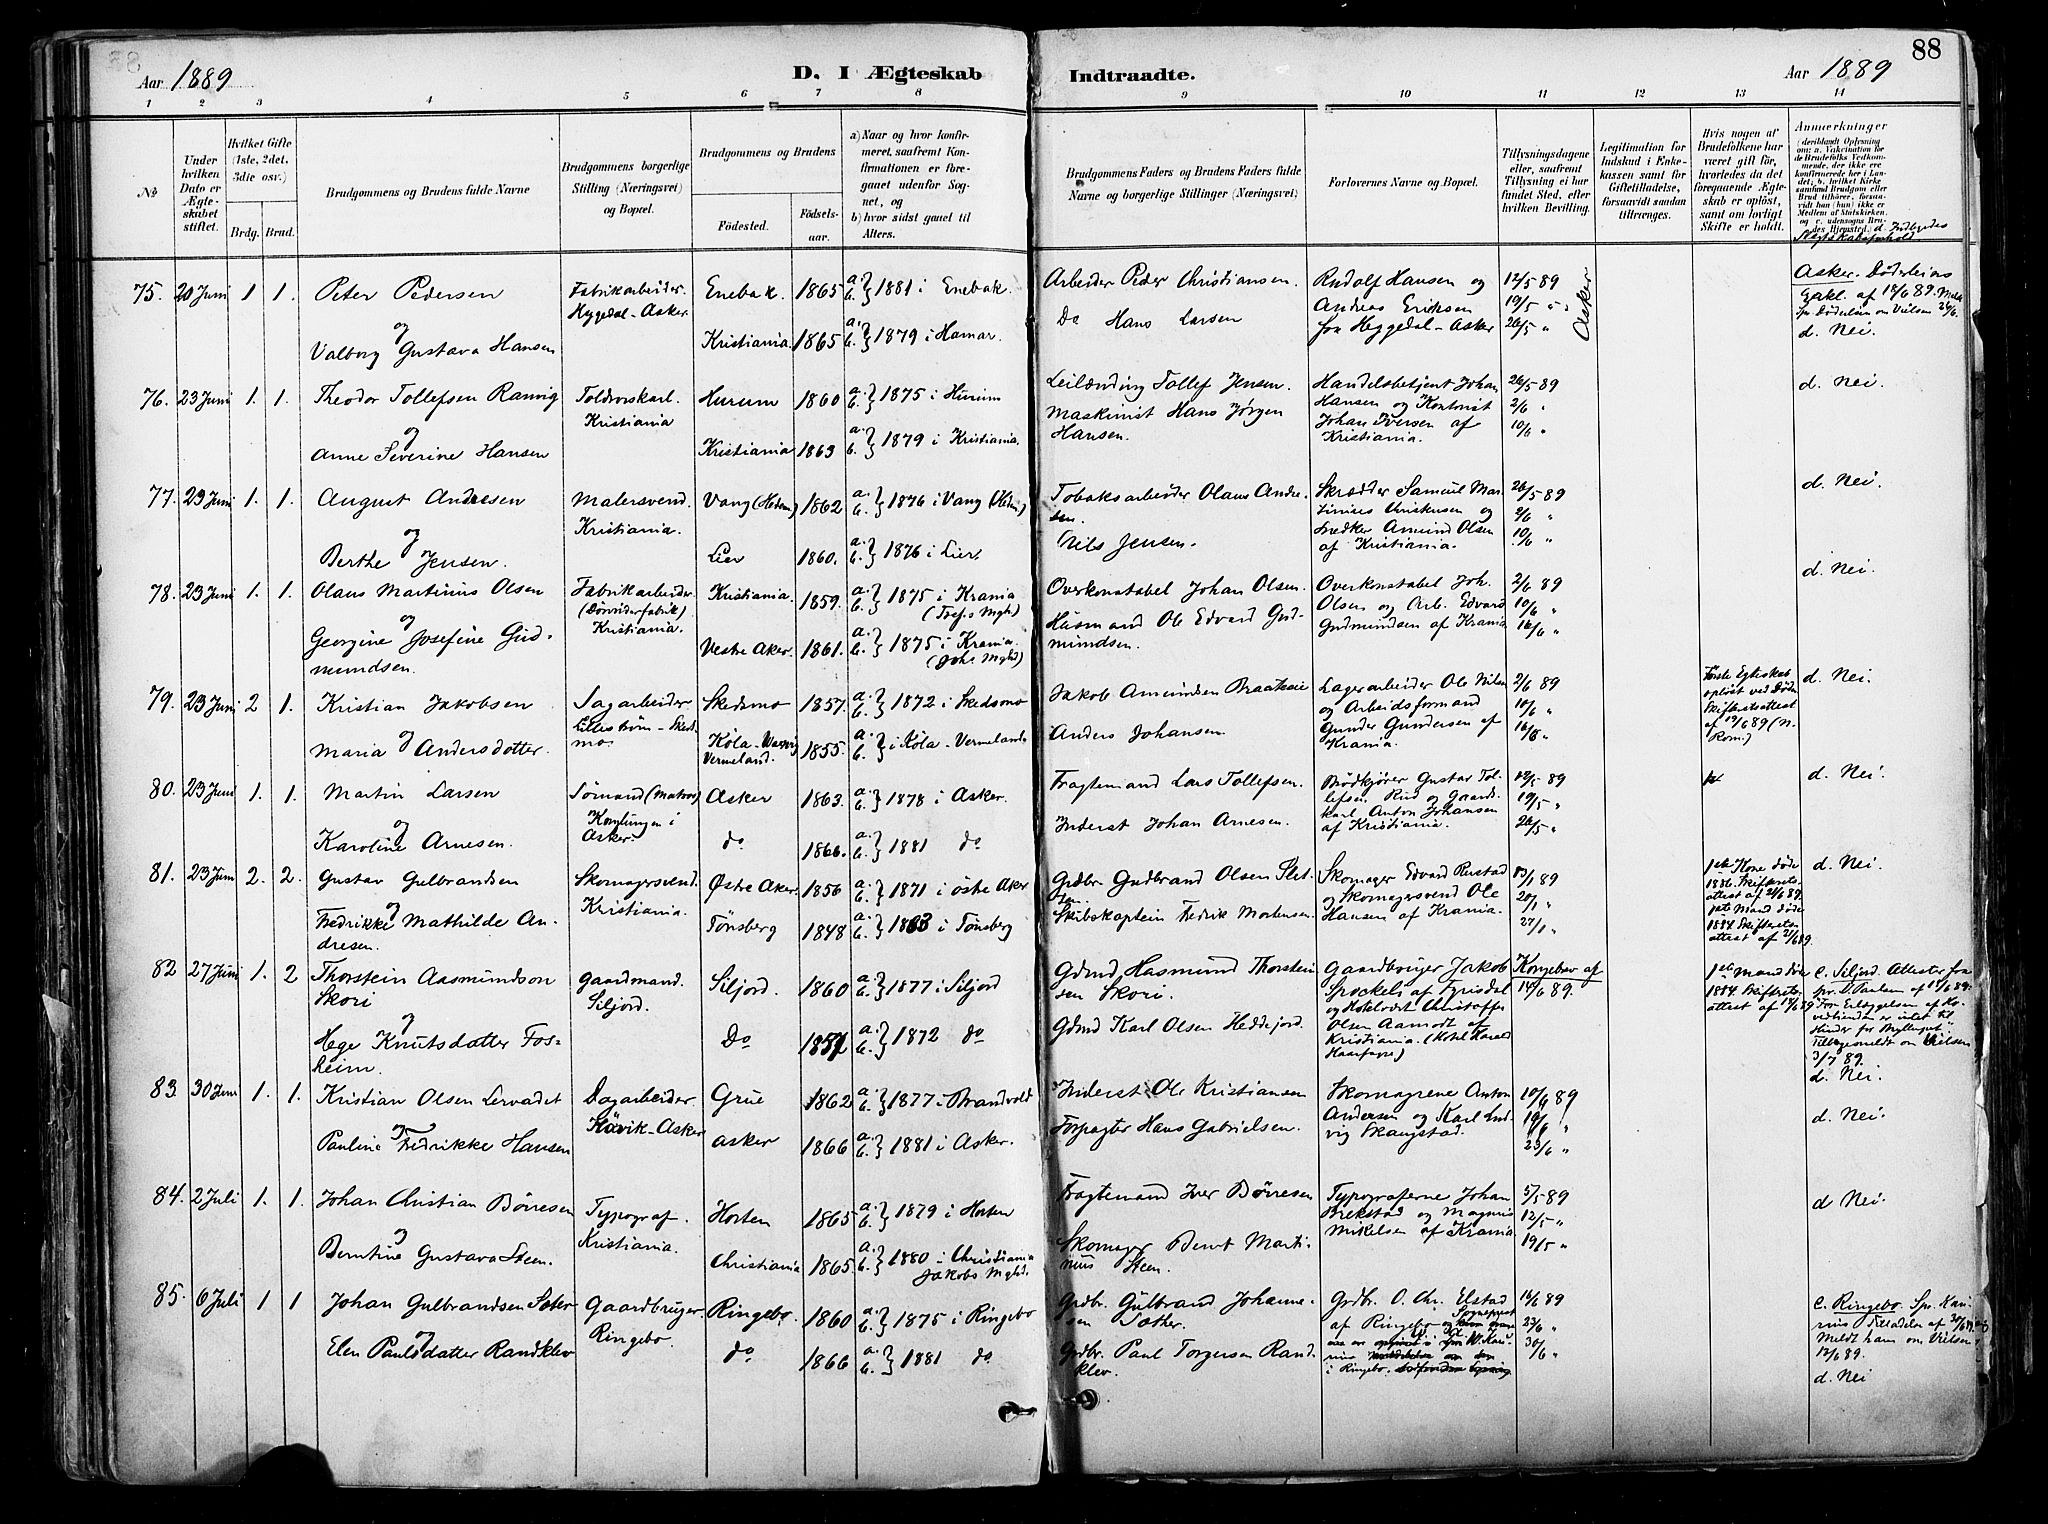 88
Aar 1889
D. I Ægteskab Indtraadte.
Aar 1889
88
1 2 3 4 5 6 7 8 9 10 11 12 13 14
No.
Under hvilken Dato er Ægteskabet stiftet.
Hvilket Gifte (1ste, 2det, 3die osv.)
Brdg. Brud.
Brudgommens og Brudens fulde Navne
Brudgommens borgerlige Stilling (Næringsvei) og Bopæl.
Brudgommens og Brudens
Fødested.
Fødselsaar.
a) Naar og hvor konfirmeret, saafremt Konfirmationen er foregaaet udenfor Sognet, og
b) hvor sidst gaaet til Alters.
Brudgommens Faders og Brudens Faders fulde Navne og borgerlige Stillinger (Næringsvei)
Forlovernes Navne og Bopæl.
Tillysningsdagene eller, saafremt Tillysning ei har fundet Sted, efter hvilken Bevilling.
Legitimation for Indskud i Enkekassen samt for Giftetilladelse, forsaavidt sandan tiltrænges.
Hvis nogen af Brudefolkene har været gift før, hvorledes da det foregaaende Ægteskab er opløst, samt om lovligt Skifte er holdt.
Anmerkninger
(deriblandt Oplysning om: a. Vakcination for de Brudefolks Vedkommende, der ikke ere konfirmerede her i Landet; b. hvilket Kirkesamfund Brudgom eller Brud tilhører, forsaavidt han (hun) ikke er Medlem af Statskirken, og c. udensogns Brudes Hjemsted. d. Indbyrdes Slegtskabsforhold
75. 20 Juni 1 1. Peter Pedersen Fabrikarbeider. Enebak. 1865 a. b. } 1881 i Enebak. Arbeider Peder Christiansen Rudolf Hansen og 12/5 89 Asker
og Hyggedal-Asker Andreas Eriksen 19/5 "
Valborg Gustava Hansen Kristiania 1865 a. b. } 1879 i Hamar. Do Hans Larsen fra Heggedal-Asker 26/5 " d. Nei.
76. 23 Juni 1. 1. Theodor Tollefsen Ramvig Kristiania Hurum 1860 a. b. } 1875 i Hurum Leilænding Tollef Jensen. Handelsbetjent Johan 26/5 89 d. Nei.
og Hansen og Kontorist 2/6 "
Anne Severine Hansen Kristiania 1863 a. b. } 1879 i Kristiania. Maskinist Hans Jørgen Hansen. Johan Iversen af Kristiania. 10/6 "
77. 23 Juni 1. 1. August Andresen Malersvend. Kristiania. Vang (Hedm) 1862 a. b. } 1876 i Vang (Hedm) Tobaksarbeider Olaus Andresen. Skrædder Samuel Marinius Christensen og 26/5 89 d. Nei.
og Snedker Amund Olsen 2/6 "
Berthe Jensen. Lier 1860. a. b. } 1876 i Lier. Nils Jensen. af Kristiania. 10/6 "
78. 23 Juni 1. 1. Olaus Martinius Olsen Fabrikarbeider Kristiania. Kristiania. 1859. a. b. } 1875 i Krania (Tref. Mgh) Overkonstabel Johan Olsen. Overkonstabel Joh. 2/6 89 d. Nei.
og Olsen og Arb. Edvard 10/6 "
Georgine Josefine Gudmundsen. Vestre Aker. 1861. a. b. } 1875 i Krania. (Johs Mghd) Husmand Ole Edvard Gudmundsen. Gudmundsen af Krania 16/6 "
79. 23 Juni 2 1. Kristian Jakobsen Sagarbeider Lillestrøm-Skedsmo. Skedsmo 1857. a. b. } 1872 i Skedsmo Jakob Amundsen Braateie Lagerarbeider Ole Nilsen 2/6 89 Første Egteskab opløst ved Døden Skifteretsattest af 19/6 89 (N. Rom.) d. Nei.
og og Arbeidsformand 10/6 "
Maria Andersdotter. Köla-Vermeland. 1855. a. b. } i Köla-Vermeland Anders Johansen. Gunder Gundersen af Krania. 16/6 "
80. 23 Juni 1. 1. Martin Larsen Sømand (Matros) Konglungen i Asker. Asker 1863. a. b. } 1878 i Asker. Fragtemand Lars Tollefsen. Brødkjører Gustav Tollefsen Rud og Gaardskarl Anton Johansen 12/5 89 d. Nei.
og 19/5 "
Karoline Arnesen. do 1866. a. b. } 1881 do Inderst Johan Arnesen. af Kristiania. 26/5 "
81. 23 Juni 2. 2. Gustav Gulbrandsen Skomagersvend Kristiania. Østre Aker. 1856 a. b. } 1871 i Østre Aker Grdbr. Gudbrand Olsen Skomager Edvard Rustad 13/1 89 1ste Kone døde 1886. Skifterets attest af 21/6 89. 1ste Mand døde 1884. Skifterets attest af 21/6 89. d. Nei.
og og Skomagersvend Ole 20/1 "
Fredrikke Mathilde Andresen. Tønsberg 1848 a. b. } 1863 i Tønsberg Skibskaptein Fredrik Mortensen. Hansen af Krania. 27/1 "
82 27 Juni 1. 2 Thorstein Aasmundson Skori Gaardmand. Siljord. Siljord. 1860 a. b. } 1877 i Siljord Gdmd Aasmund Thorsteinsen Skori. Gaardbruger Jakob af Fyrisdal Kongebrev af 14/6 89. 1ste Mand død 1884. Skifterets attest af c. Siljord. Attester fra Spr. D. Paulsen af
og og Hotelvært Christoffer
Hege Knutsdatter Fosheim. Do a. b. } 1872 do Gdmd Karl Olsen Heddejord. Olsen Aamodt af Kristiania. (Hotel Harald Haarfagre) Tilbagemeldt om Vielsen 3/7 89. d. Nei.
83. 30 Juni 1. 1. Kristian Olsen Lervadet Dagarbeider Grue 1862 a. b. } 1877 i Brandvold Inderst Ole Kristiansen Skomagerne Anton 10/6 89
og -Asker Andersen og Karl Ludvig Skangstad. 19/6 " d. Nei.
Pauline Fredrikke Hansen Asker 1866 a. b. } 1881 i Asker. Forpagter Hans Gabrielsen. 23/6 "
84. 2 Juli 1. 1. Johan Christian Børresen Typograf. Kristiania. Horten 1865 a. b. } 1879 i Horten Fragtemand Iver Børresen Typograferne Johan 5/5 89 d Nei.
og Brekstad og Magnus 12/5 "
Berntine Gustava Steen. Christiania 1865 a. b. } 1880 i Christiania Jakobs Mghd. Skomager Bernt Martinius Steen. Mikelsen af Krania. 19/5 "
85. 6 Juli 1 1 Johan Gulbrandsen Gaardbruger Ringebo. Ringebo. 1860 a. b. } 1875 i Ringebo Grdbr. Gulbrand Johannesen Sæther. Grdbr. O. Chr. Elstad 16/6 89 c. Ringebo. Spr.
og af Ringebo og Sogneprest 23/6 "
Elen Paulsdatter Randklev do 1866 a. b. } 1881 do. Grdbr. Paul Torgersen Randklev. i Ringebo. 30/6 " Meldt ham om Vielsen 12/6 89. d. Nei